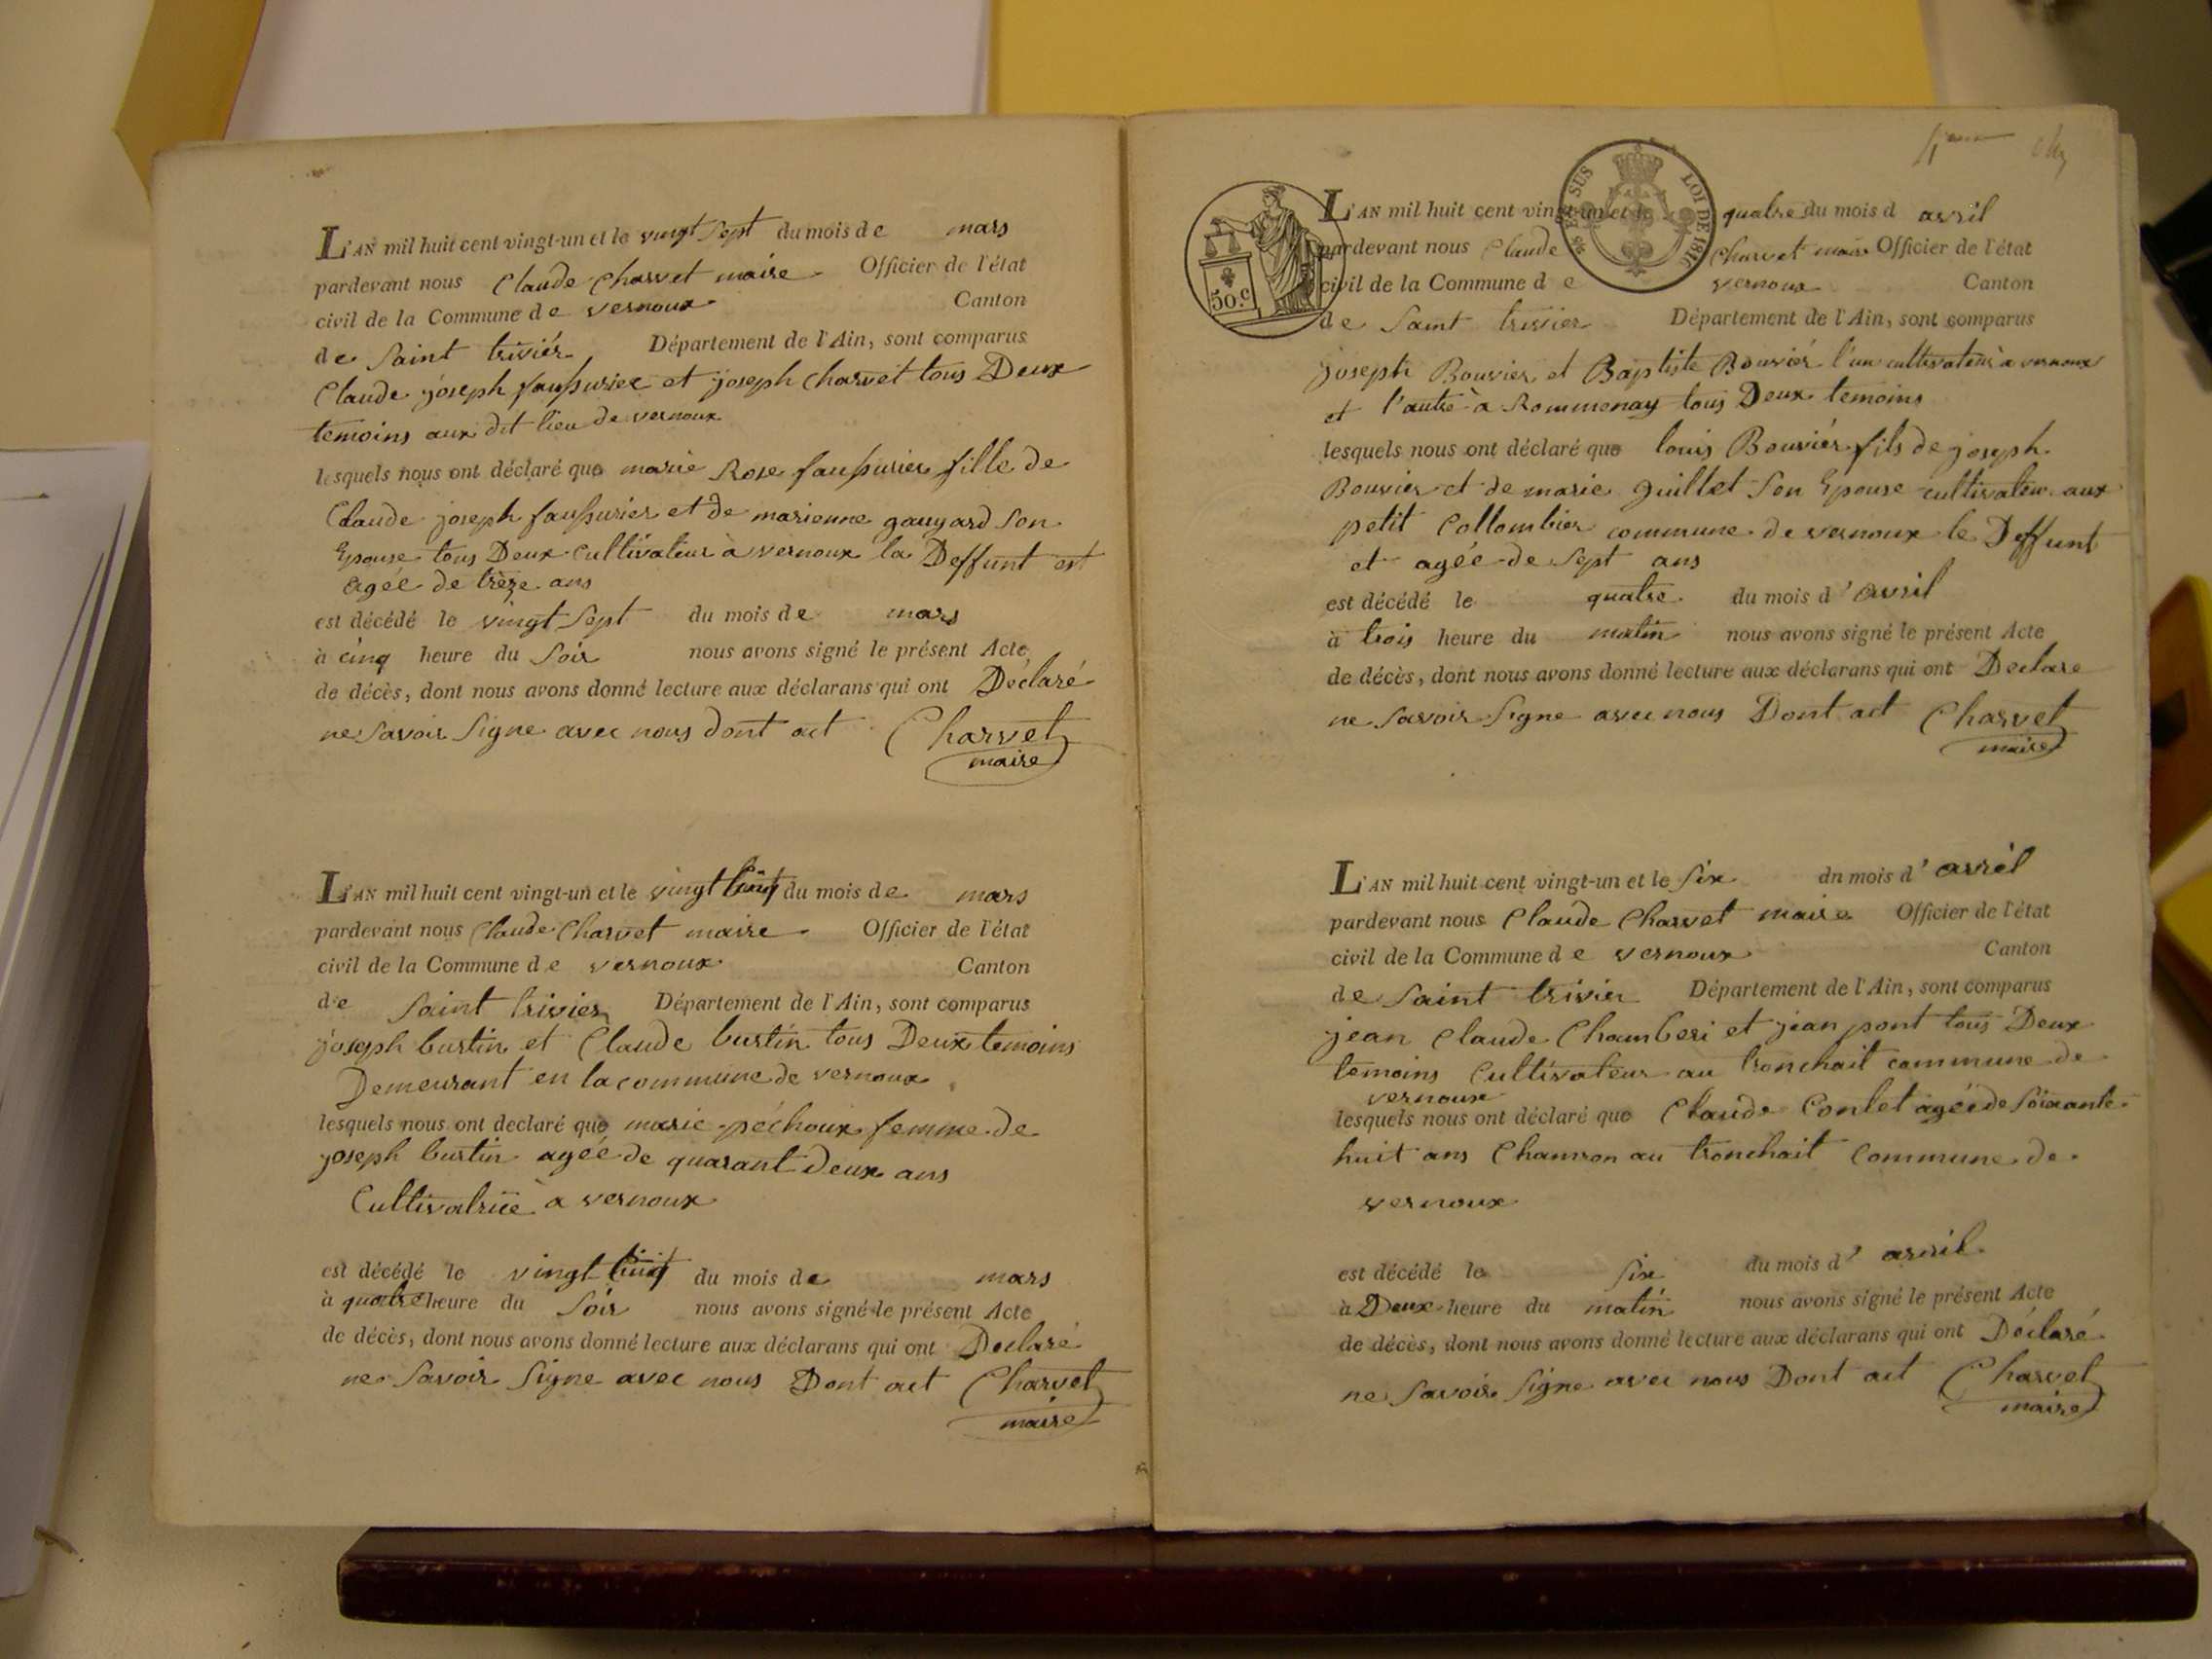 L'AN mil huit cent vingt-un et le vingt sept du mois de mars
pardevant nous Claude Charvet maire Officier de l'état
civil de la Commune de vernoux Canton
de Saint triviér Département de l'Ain, sont comparus
Claude joseph faussurier et joseph charvet tous Deux
temoins aux dit lieu de vernoux
lesquels nous ont déclaré que marie Rose faussurier fille de
Claude joseph faussurier et de marienne gauyard son
Epouse tous Deux Cultivateur à vernoux la Deffunt est
agée de trèze ans
est décédé le vingt Sept du mois de mars
à cinq heure du Soir nous avons signé le présent Acte
de décès, dont nous avons donné lecture aux déclarans qui ont Déclaré
ne Savoir Signe avec nous dont act Charvet
maire
L'AN mil huit cent vingt-un et le vingt du mois de mars
pardevant nous Claude Charvet maire Officier de l'état
civil de la Commune de vernoux Canton
de Saint trivier Département de l'Ain, sont comparus
joseph burtin et Claude burtin tous Deux temoins
Demeurant en la commune de vernoux
lesquels nous ont declaré que marie péchoux femme de
joseph burtin agée de quarant Deux ans
Cultivatrice à vernoux
est décédé le vingt du mois de mars
à quatre heure du Soir nous avons signé le présent Acte
de décès, dont nous avons donné lecture aux déclarans qui ont Declaré
ne Savoir Signe avec nous Dont act Charvet
maire
50.c
SUS LOI DE 1816
L'AN mil huit cent vingt-un et le quatre du mois d avril
pardevant nous Claude Charvet maire Officier de l'état
civil de la Commune de vernoux Canton
de Saint trivier Département de l'Ain, sont comparus
joseph Bouvier et Baptiste Bouviér l'un cultivateur à vernoux
et l'autre à Rommenay tous Deux temoins
lesquels nous ont déclaré que louis Bouviér fils de joseph
Bouvier et de marie guillet Son Epouse cultivateur aux
petit Collombier commune de vernoux le Deffunt
et agée de Sept ans
est décédé le quatre du mois d'avril
à trois heure du matin nous avons signé le présent Acte
de décès, dont nous avons donné lecture aux déclarans qui ont Declare
ne Savoir Signe avec nous Dont act Charvet
maire
L'AN mil huit cent vingt-un et le Six dn mois d'avril
pardevant nous Claude Charvet maire Officier de l'état
civil de la Commune de vernoux Canton
de Saint trivier Département de l'Ain, sont comparus
jean Claude Chamberi et jean pont tous Deux
temoins Cultivateur au tronchait commune de
vernoux
lesquels nous ont déclaré que Claude Contet agée de Soixante
huit ans Chanron au tronchait Commune de
vernoux
est décédé le Six du mois d'avril
à Deux heure du matin nous avons signé le présent Acte
de décès, dont nous avons donné lecture aux déclarans qui ont Déclaré
ne Savoir Signe avec nous Dont act Charvet
maire